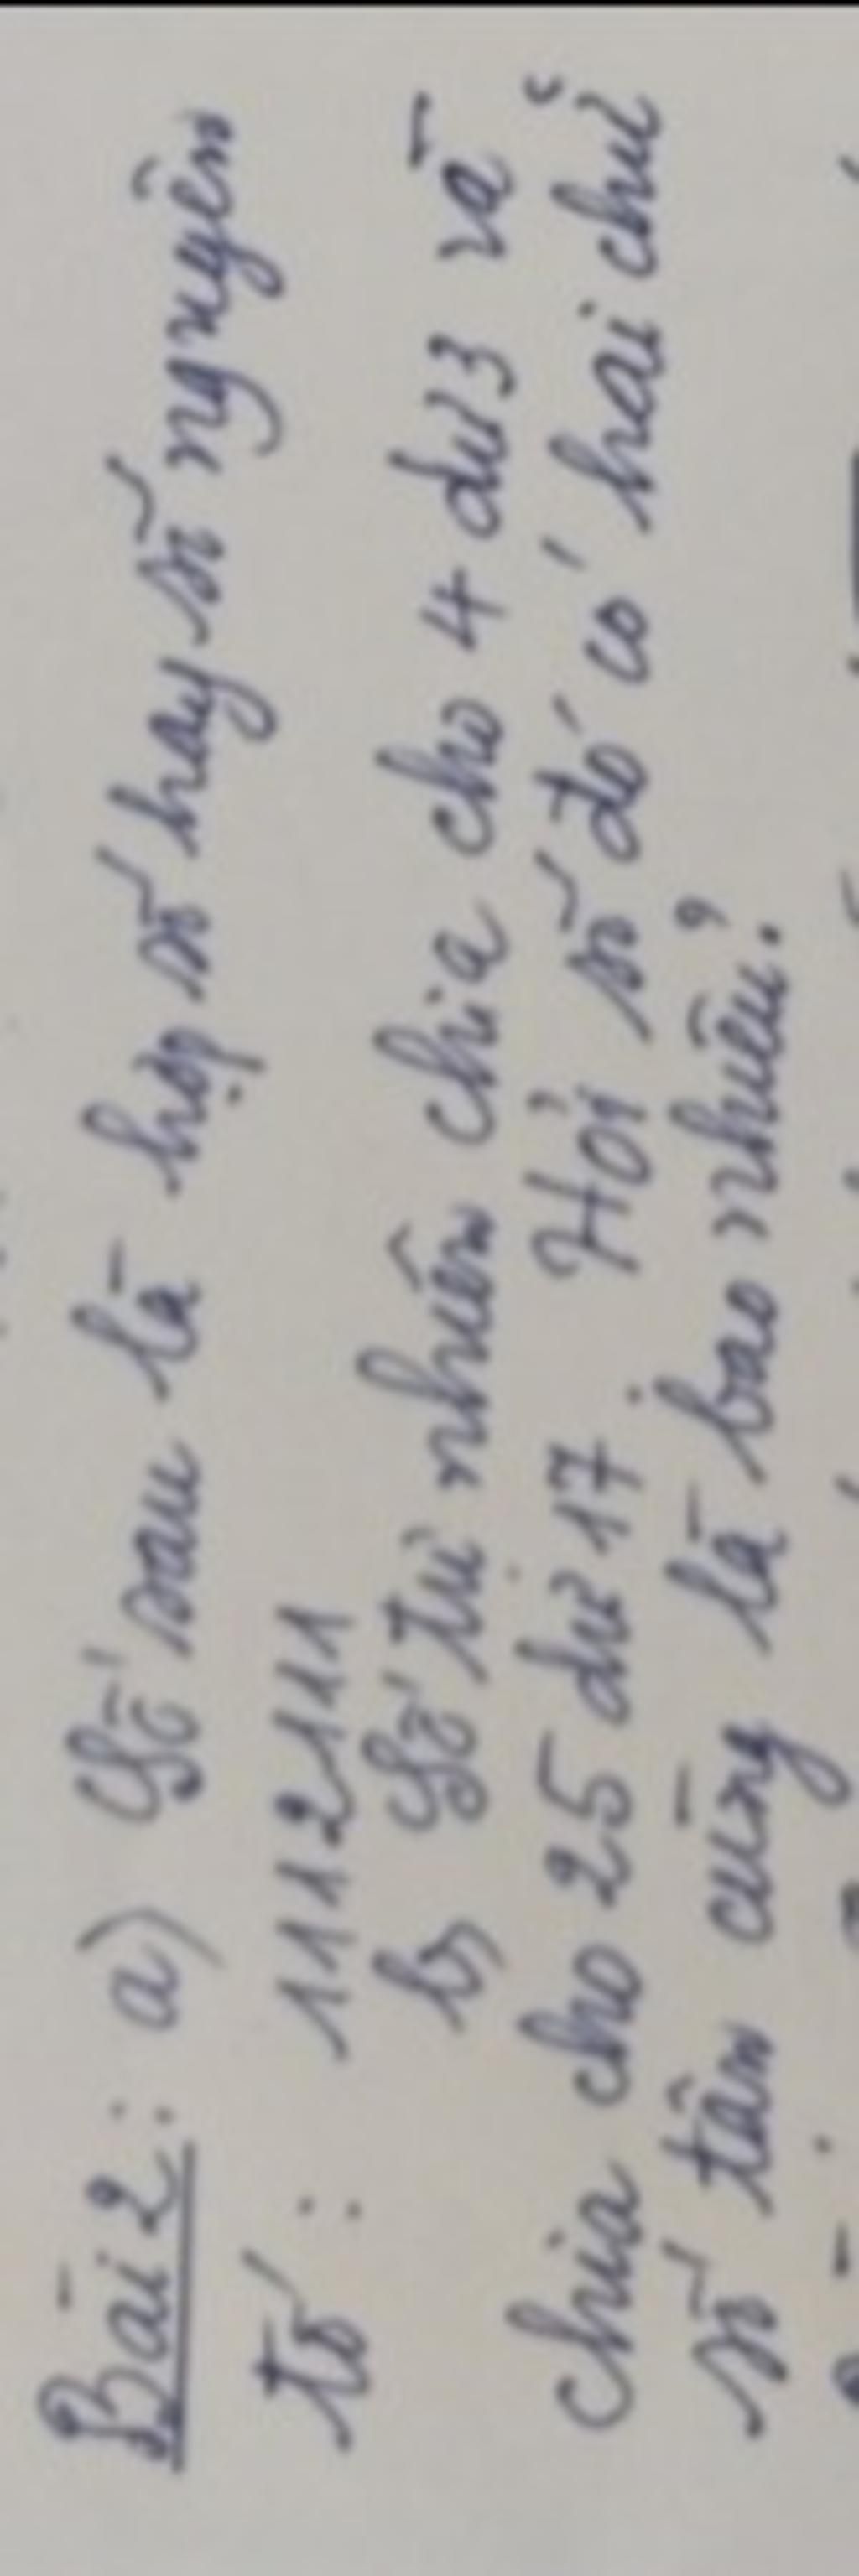 Bài 2: a) Số sau là hợp số hay số nguyên
tố: 1112111
b, Số tự nhiên chia cho 4 dư 3 và
chia cho 25 dư 17. Hỏi số đó có hai chữ
số tận cùng là bao nhiêu?